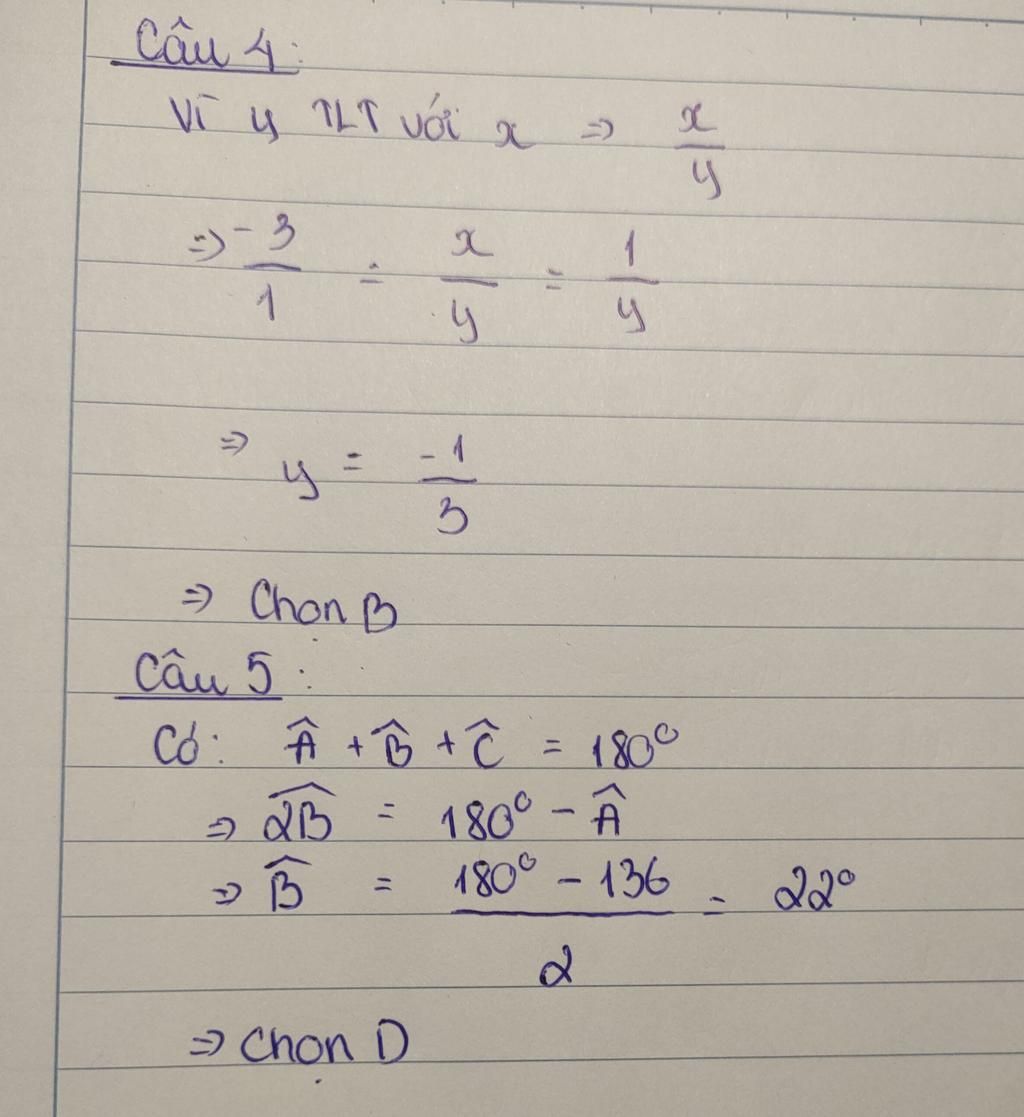 Câu 4:
Vì y TLT với x => x/y
=> -3/1 = x/y = 1/y
=> y = -1/3
=> Chọn B
Câu 5:
Có: Â + B̂ + Ĉ = 180°
=> 2B̂ = 180° - Â
=> B̂ = (180° - 136)/2 = 22°
=> Chọn D